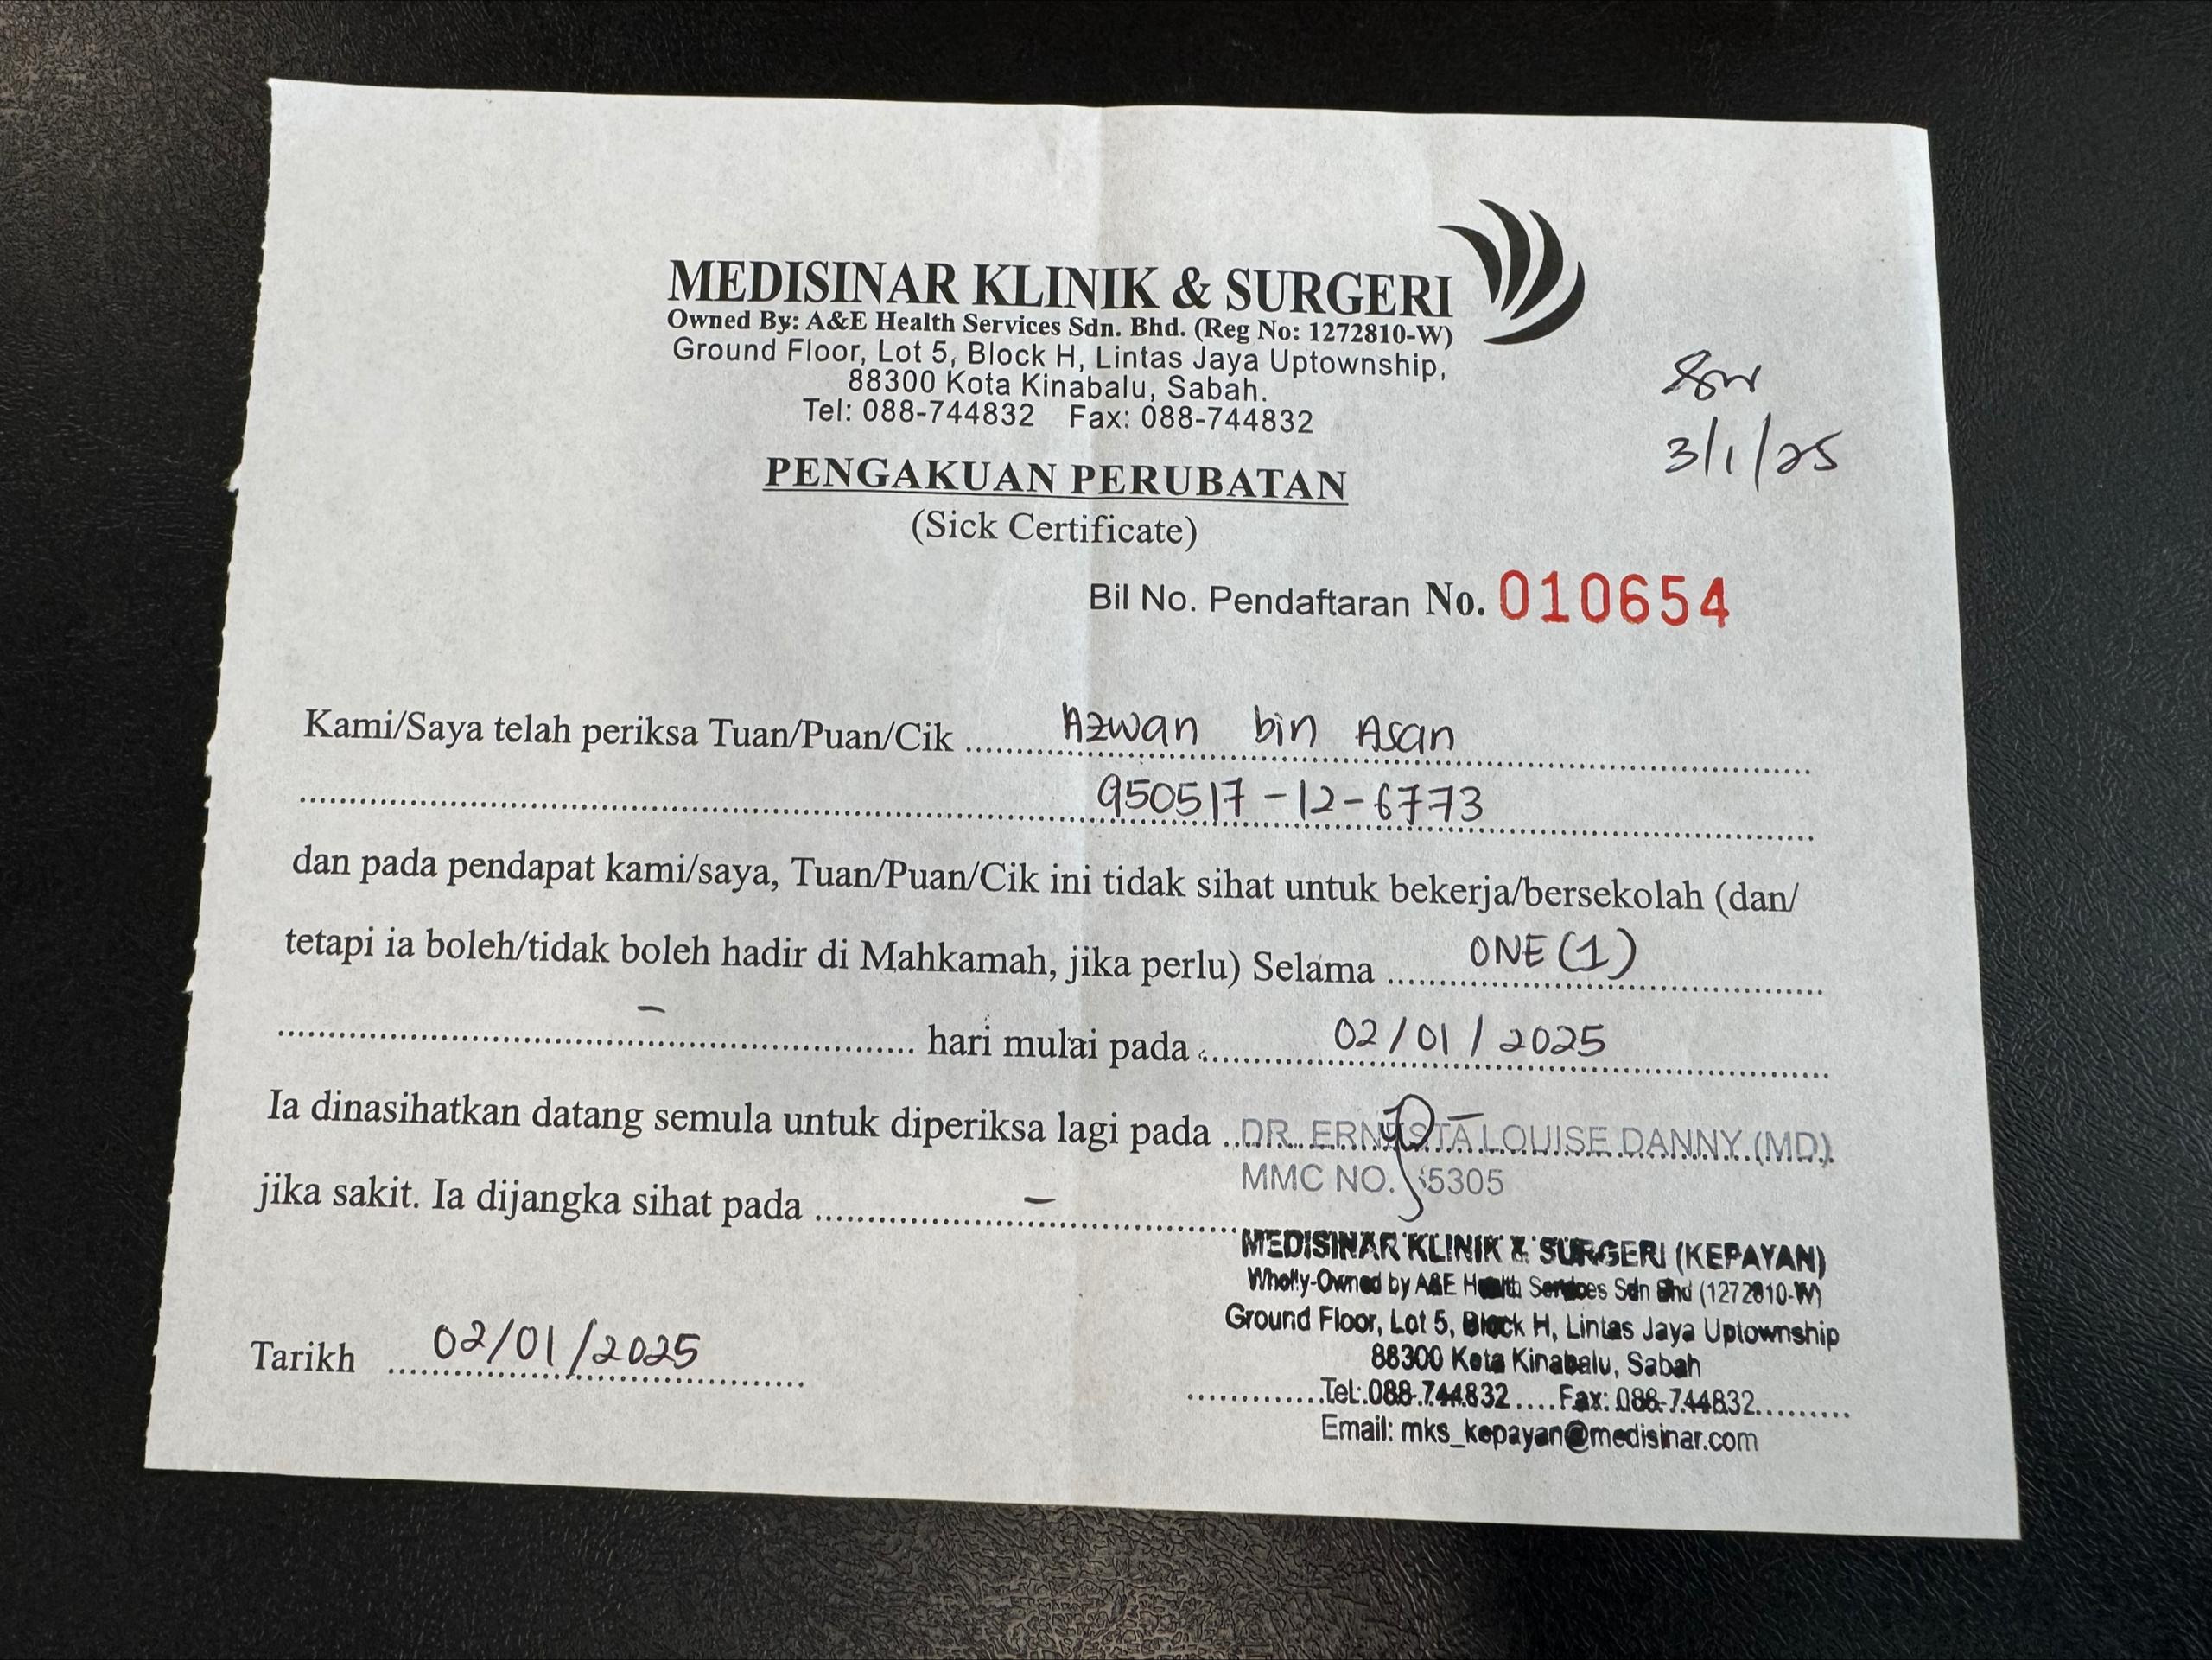 MEDISINAR KLINIK & SURGERI
Owned By: A&E Health Services Sdn. Bhd. (Reg No: 1272810-W)
Ground Floor, Lot 5, Block H, Lintas Jaya Uptownship,
88300 Kota Kinabalu, Sabah.
Tel: 088-744832 Fax: 088-744832
3/1/25
PENGAKUAN PERUBATAN
(Sick Certificate)
Bil No. Pendaftaran No. 010654
Kami/Saya telah periksa Tuan/Puan/Cik Azwan bin Asan
950517-12-6773
dan pada pendapat kami/saya, Tuan/Puan/Cik ini tidak sihat untuk bekerja/bersekolah (dan/
tetapi ia boleh/tidak boleh hadir di Mahkamah, jika perlu) Selama ONE (1)
- hari mulai pada 02/01/2025
Ia dinasihatkan datang semula untuk diperiksa lagi pada - DR. LOUISE DANNY (MD)
MMC NO.
jika sakit. Ia dijangka sihat pada -
MEDISINAR KLINIK & SURGERI (KEPAYAN)
Wholly-Owned by A&E Health Services Sdn Bhd (1272810-W)
Ground Floor, Lot 5, Block H, Lintas Jaya Uptownship
88300 Kota Kinabalu, Sabah
Tel: 088-744832 Fax: 088-744832
Email: mks_kepayan@medisinar.com
Tarikh 02/01/2025